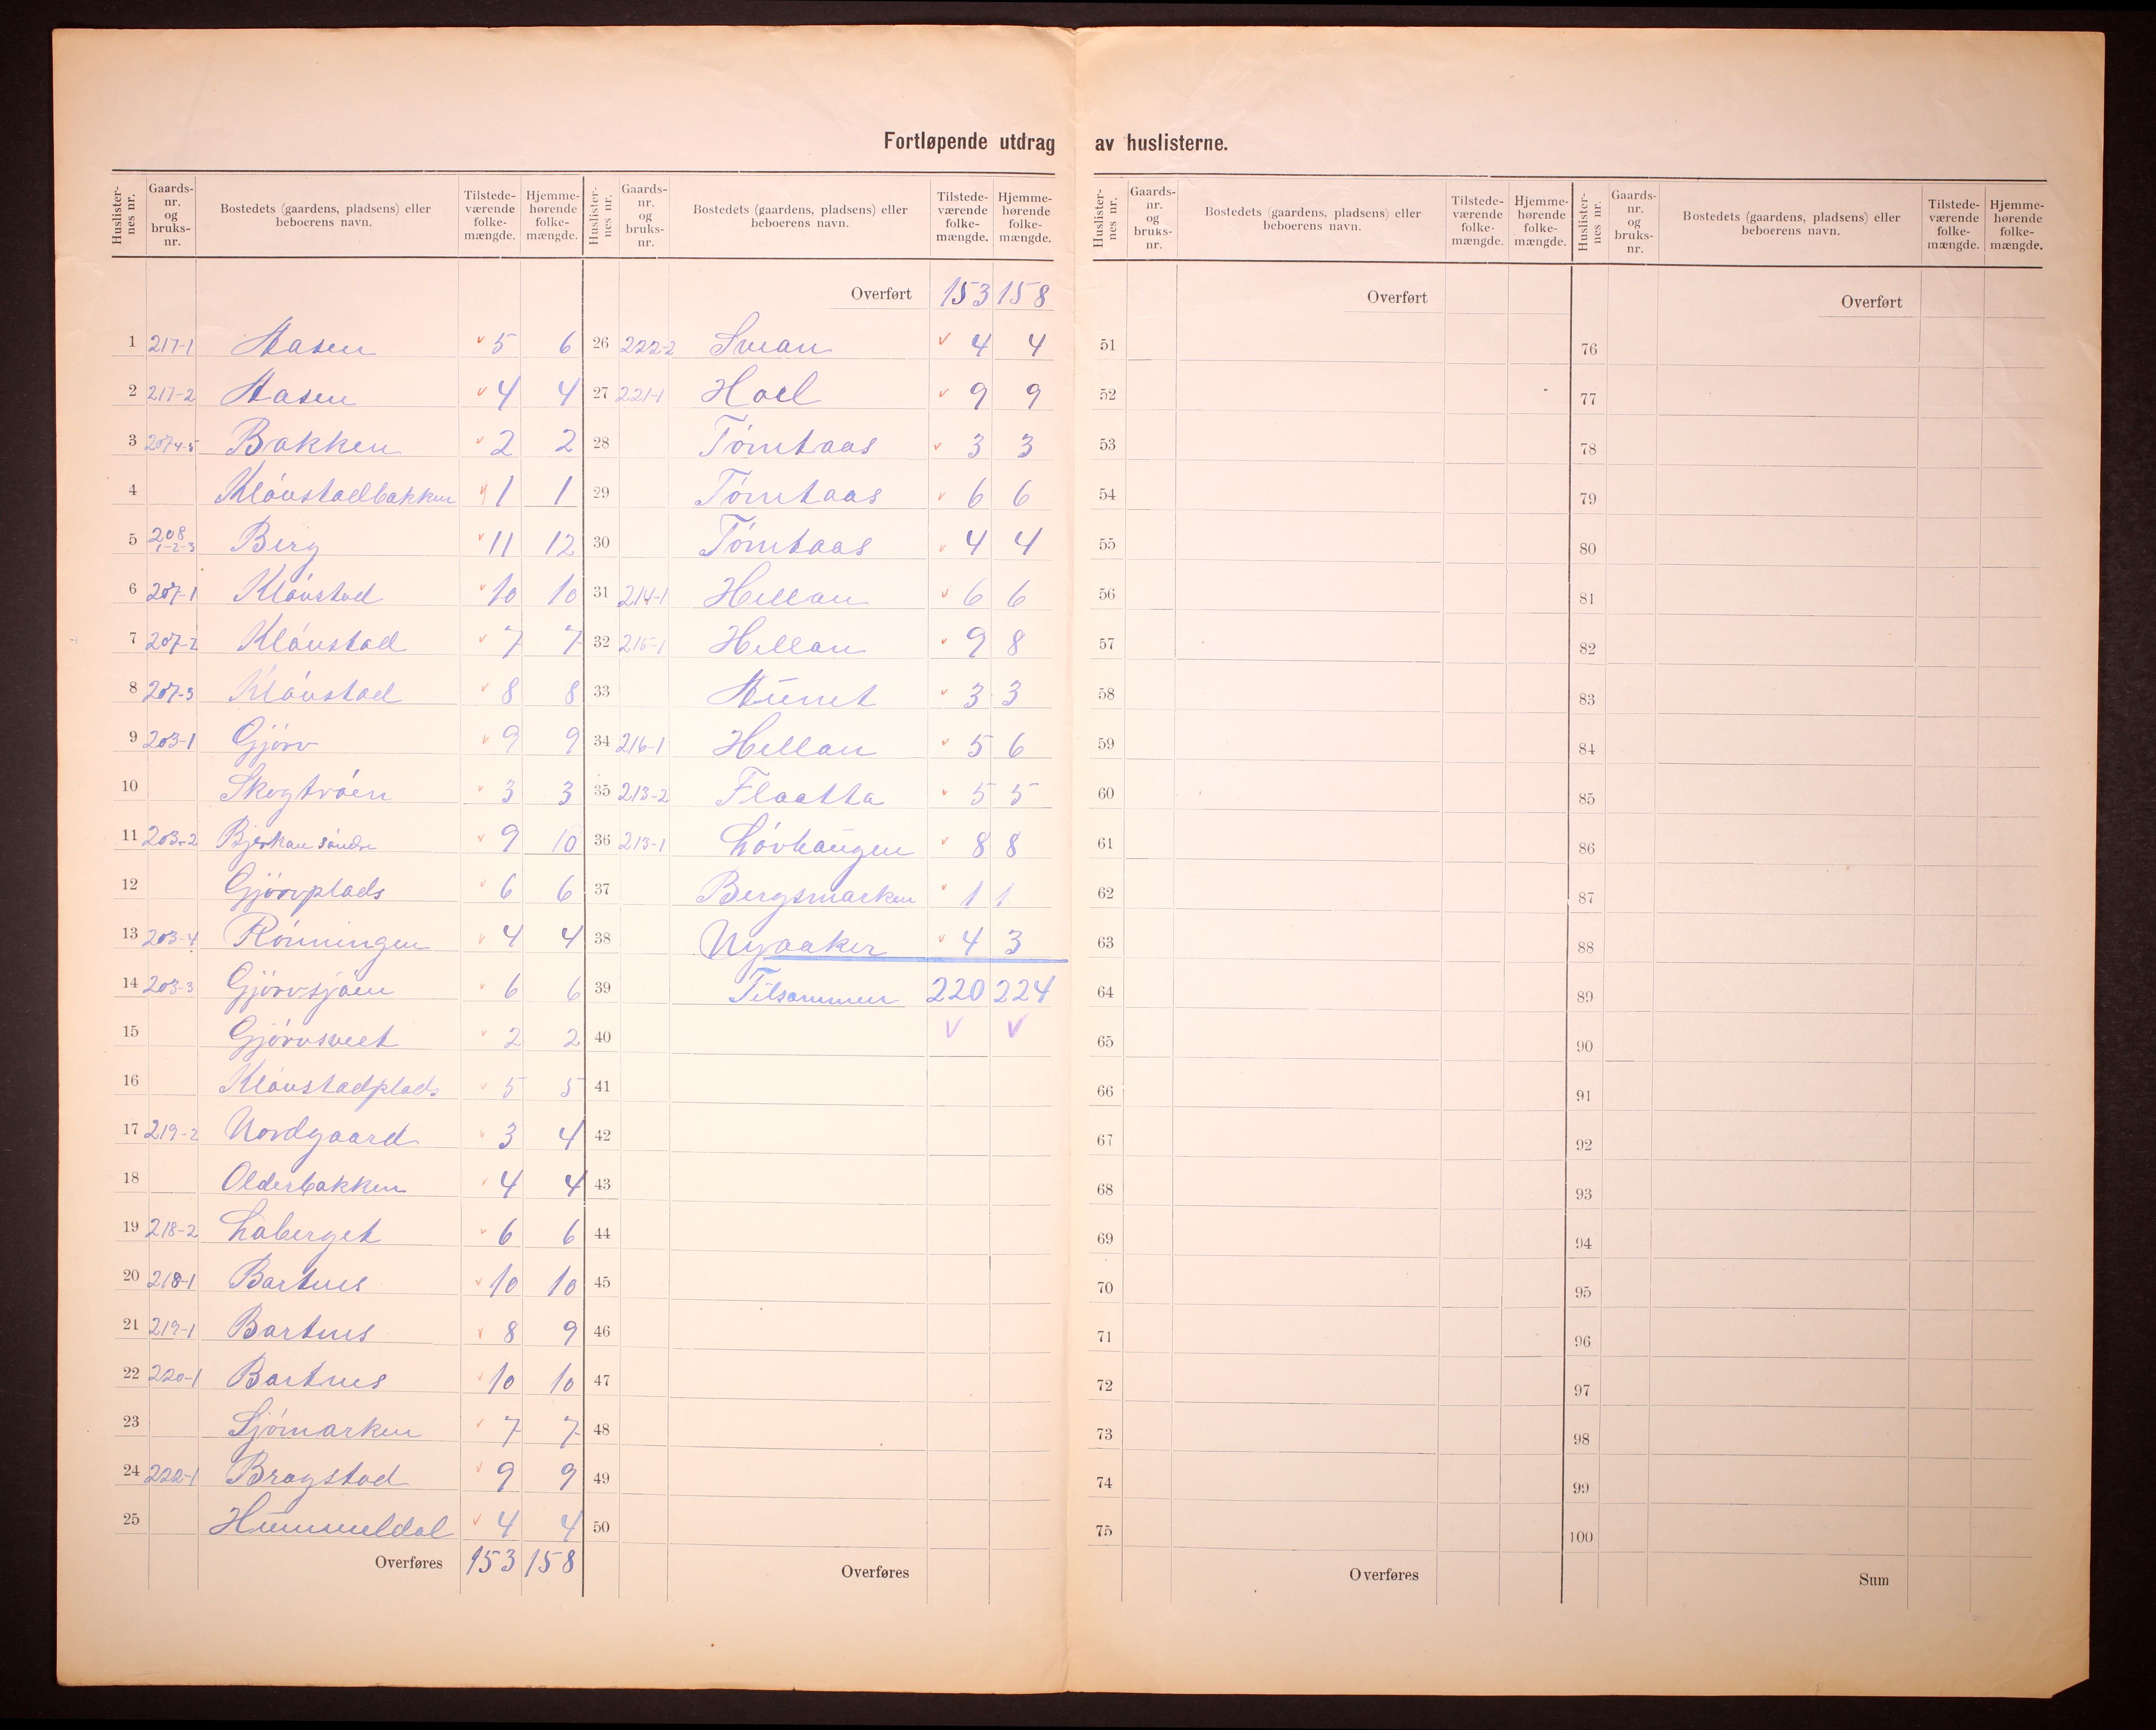 Fortløpende utdrag av huslisterne.
Huslisternes nr. Gaards-nr. og bruks-nr. Bostedets (gaardens, pladsens) eller beboerens navn. Tilstede-værende folke-mængde. Hjemme-hørende folke-mængde. Huslisternes nr. Gaards-nr. og bruks-nr. Bostedets (gaardens, pladsens) eller beboerens navn. Tilstede-værende folke-mængde. Hjemme-hørende folke-mængde.
1 217-1 Aasen v 5 6
2 217-2 Aasen v 4 4
3 207 4-5 Bakken v 2 2
4 Kløvstadbakken v 1 1
5 208 1-2-3 Berg v 11 12
6 207-1 Kløvstad v 10 10
7 207-2 Kløvstad v 7 7
8 207-3 Kløvstad v 8 8
9 203-1 Gjørv v 9 9
10 Skogtrøen v 3 3
11 203-2 Bjerkan søndre v 9 10
12 Gjørvplads v 6 6
13 203-4 Rønningen v 4 4
14 203-3 Gjørvsjøen v 6 6
15 Gjørvsveet v 2 2
16 Kløvstadplads v 5 5
17 219-2 Nordgaard v 3 4
18 Olderbakken v 4 4
19 218-2 Laberget v 6 6
20 218-1 Bartnes v 10 10
21 219-1 Bartnes v 8 9
22 220-1 Bartnes v 10 10
23 Sjømarken v 7 7
24 222-1 Bragstad v 9 9
25 Hummeldal v 4 4
Overføres 153 158
Overført 153 158
26 222-2 Svean v 4 4
27 221-1 Hoel v 9 9
28 Tømtaas v 3 3
29 Tømtaas v 6 6
30 Tømtaas v 4 4
31 214-1 Hellan v 6 6
32 215-1 Hellan v 9 8
33 Aunet v 3 3
34 216-1 Hellan v 5 6
35 213-2 Flaatta v 5 5
36 213-1 Løvhaugen v 8 8
37 Bergsmarken v 1 1
38 Nyaaker v 4 3
39 Tilsammen 220 224
40 v v
41
42
43
44
45
46
47
48
49
50
Overføres
Huslisternes nr. Gaards-nr. og bruks-nr. Bostedets (gaardens, pladsens) eller beboerens navn. Tilstede-værende folke-mængde. Hjemme-hørende folke-mængde. Huslisternes nr. Gaards-nr. og bruks-nr. Bostedets (gaardens, pladsens) eller beboerens navn. Tilstede-værende folke-mængde. Hjemme-hørende folke-mængde.
Overført
51
52
53
54
55
56
57
58
59
60
61
62
63
64
65
66
67
68
69
70
71
72
73
74
75
Overføres
Overført
76
77
78
79
80
81
82
83
84
85
86
87
88
89
90
91
92
93
94
95
96
97
98
99
100
Sum